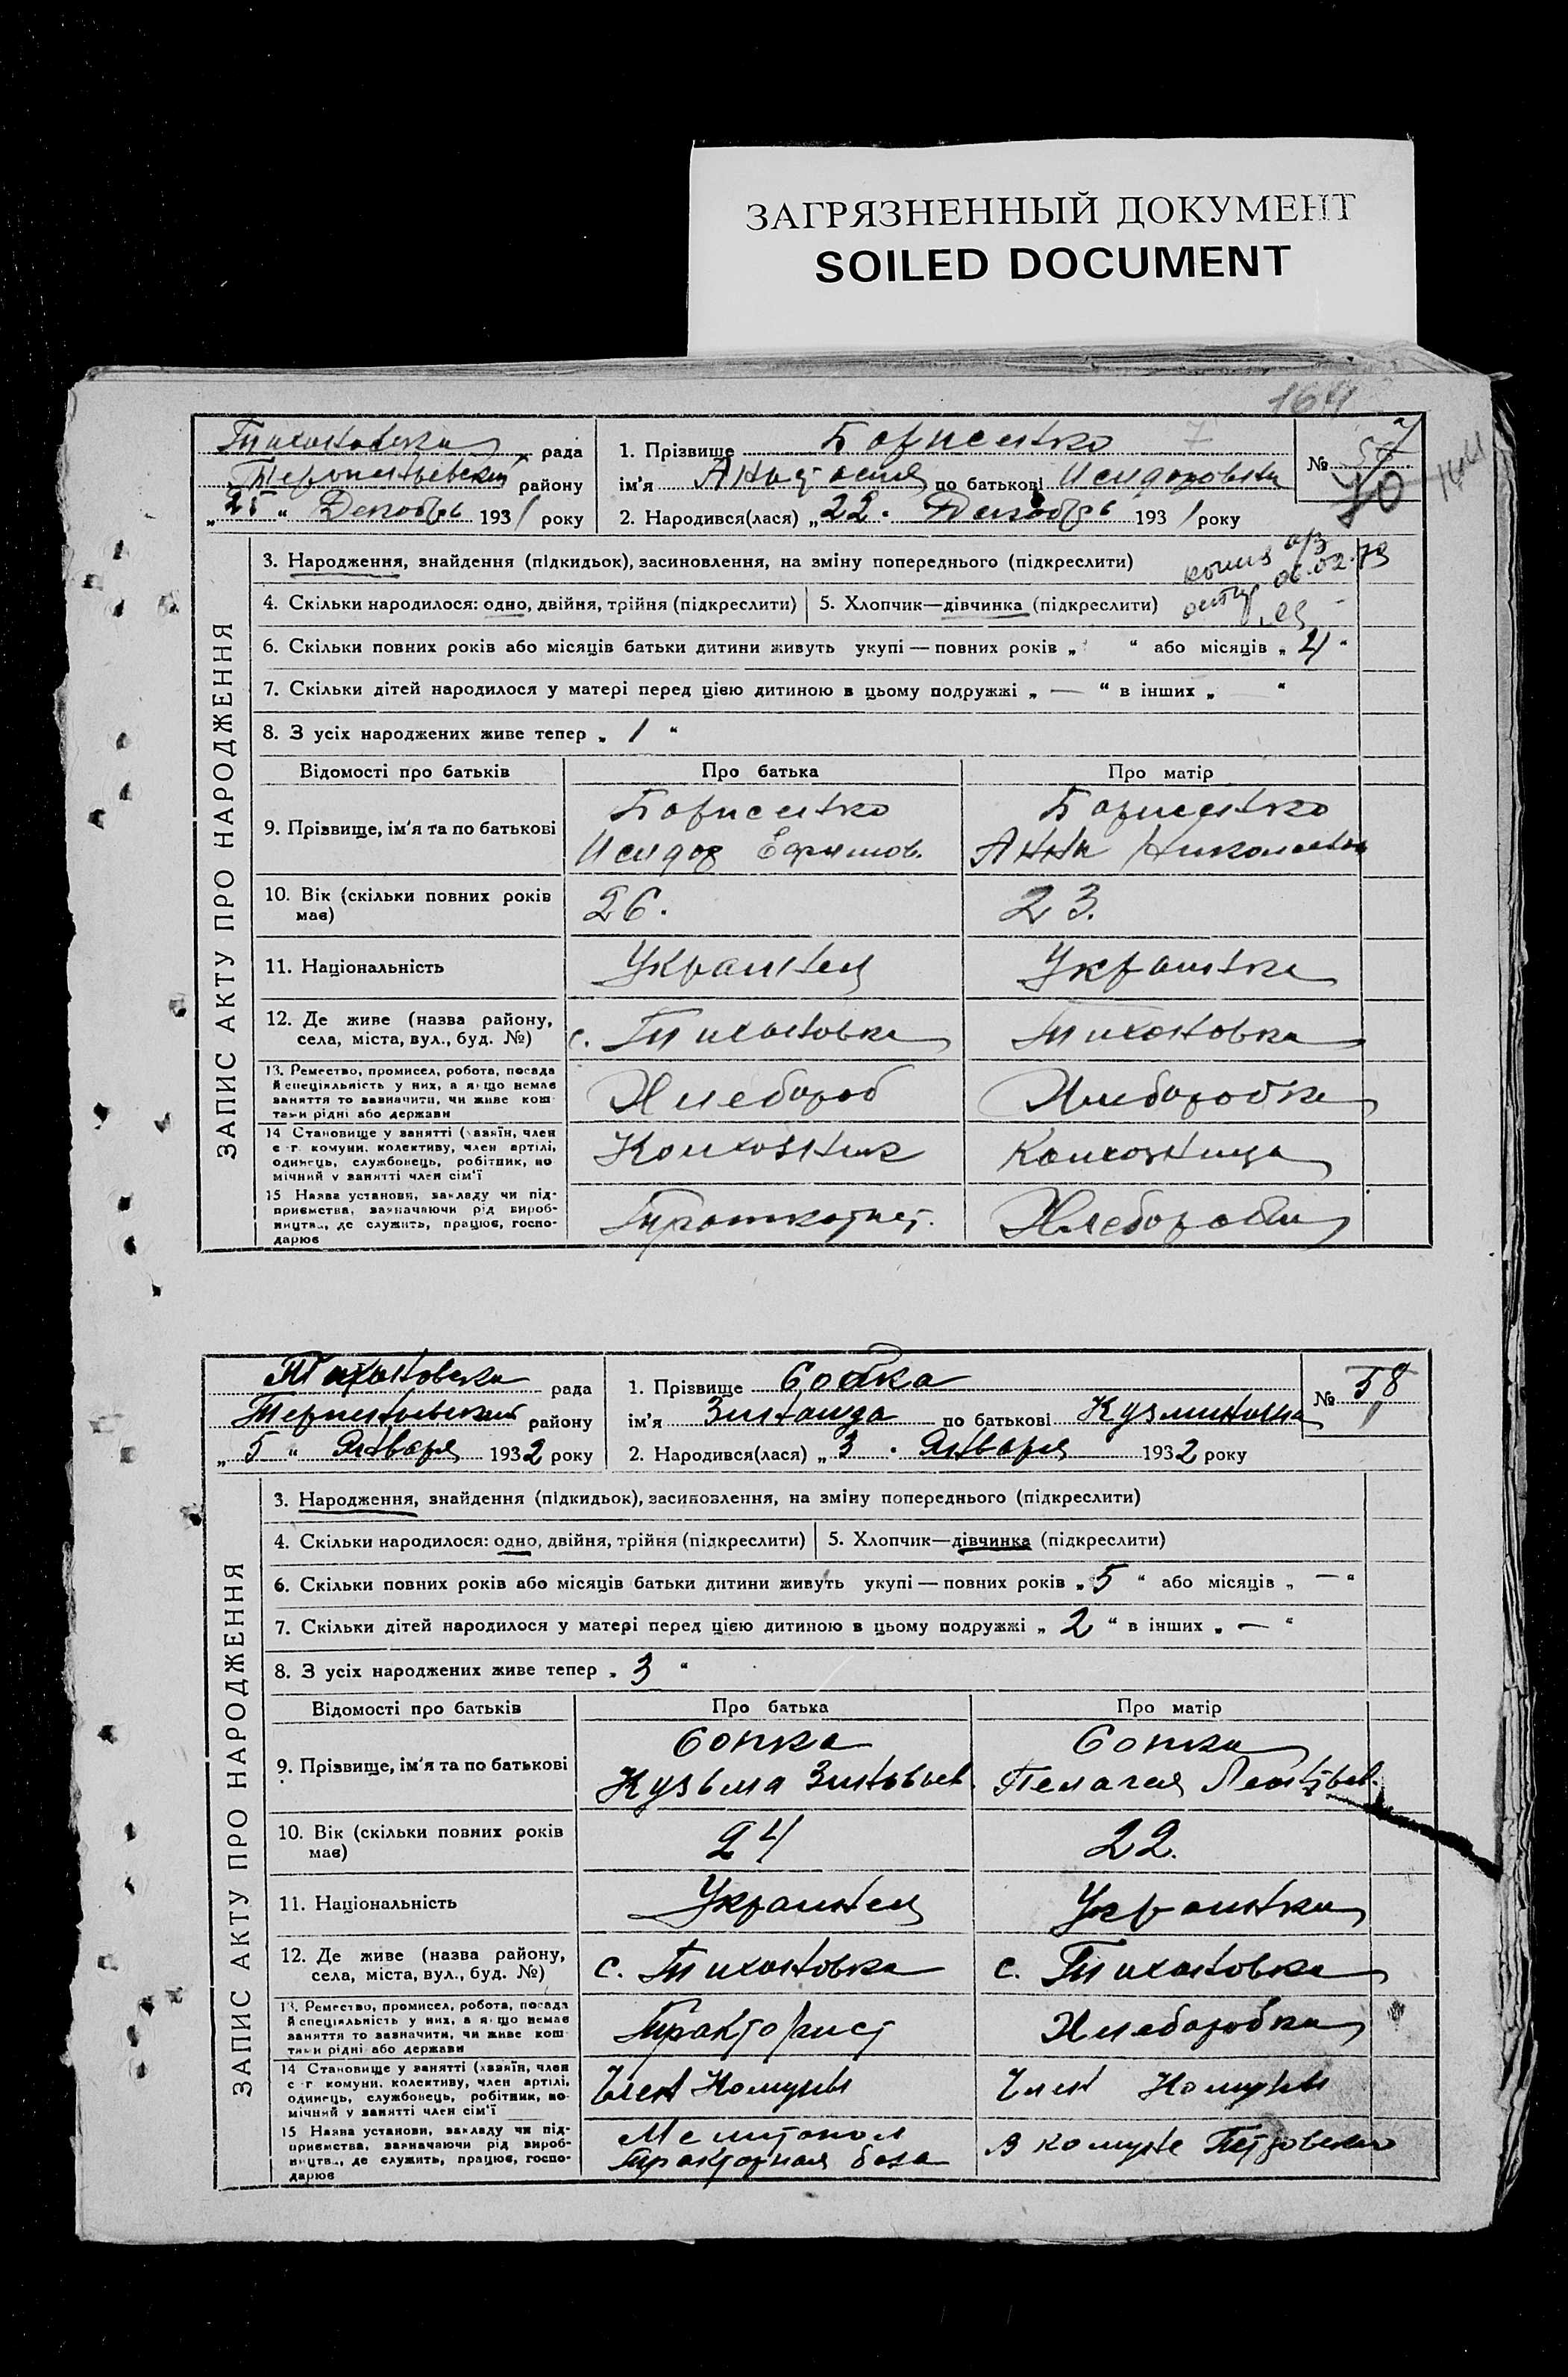 ЗАГРЯЗНЕННЫЙ ДОКУМЕНТ
SOILED DOCUMENT
164
Тихоновска рада
району
„25“ Декабрь 1931 року
1. Прізвище Борисенко 7
ім'я Анастасия по батькові Исидоровна
2. Народився(лася) „22“ Декабрь 1931 року
№
ЗАПИС АКТУ ПРО НАРОДЖЕННЯ
3. Народження, знайдення (підкидьок), засиновлення, на зміну попереднього (підкреслити)
06.02.79
4. Скільки народилося: одно, двійня, трійня (підкреслити) 5. Хлопчик—дівчинка (підкреслити)
6. Скільки повних років або місяців батьки дитини живуть укупі — повних років „ “ або місяців „ 4 “
7. Скільки дітей народилося у матері перед цією дитиною в цьому подружжі „ — “ в інших „ “
8. З усіх народжених живе тепер „ 1 “
Відомості про батьків Про батька Про матір
9. Прізвище, ім'я та по батькові
Борисенко
Исидор Ефимов.
Борисенко
Анна Николаевна
10. Вік (скільки повних років має) 26. 23.
11. Національність Украинец Украинка
12. Де живе (назва району, села, міста, вул., буд. №) с. Тихоновка Тихоновка
13. Ремество, промисел, робота, посада й спеціяльність у них, а якщо немає заняття то зазначити, чи живе коштами рідні або держави
Хлебороб Хлеборобка
14 Становище у занятті (хазяїн, член с.-г. комуни, колективу, член артілі, одинець, службовець, робітник, помічний у занятті член сім'ї
Колхозник Колхозница
15 Назва установи, закладу чи підприємства, зазначаючи рід виробництва, де служить, працює, господарює
Хлебороби
Тихоновска рада
району
„5“ Января 1932 року
1. Прізвище Сопка
ім'я Зинаида по батькові Кузминовна
2. Народився(лася) „3“ Января 1932 року
№ 58
ЗАПИС АКТУ ПРО НАРОДЖЕННЯ
3. Народження, знайдення (підкидьок), засиновлення, на зміну попереднього (підкреслити)
4. Скільки народилося: одно, двійня, трійня (підкреслити) 5. Хлопчик—дівчинка (підкреслити)
6. Скільки повних років або місяців батьки дитини живуть укупі — повних років „ 5 “ або місяців „ — “
7. Скільки дітей народилося у матері перед цією дитиною в цьому подружжі „ 2 “ в інших „ — “
8. З усіх народжених живе тепер „ 3 “
Відомості про батьків Про батька Про матір
9. Прізвище, ім'я та по батькові
Сопка
Кузьма Зиновьев.
Сопка
Пелагея Леонтьев.
10. Вік (скільки повних років має) 24 22.
11. Національність Украинец Украинка
12. Де живе (назва району, села, міста, вул., буд. №) с. Тихоновка с. Тихоновка
13. Ремество, промисел, робота, посада й спеціяльність у них, а якщо немає заняття то зазначити, чи живе коштами рідні або держави
Тракторист Хлеборобка
14 Становище у занятті (хазяїн, член с.-г. комуни, колективу, член артілі, одинець, службовець, робітник, помічний у занятті член сім'ї
Член Комуны Член Комуны
15 Назва установи, закладу чи підприємства, зазначаючи рід виробництва, де служить, працює, господарює
Мелитопол
Тракторная база
В комуне Петровского